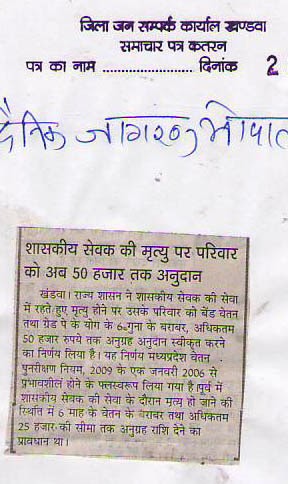 जिला जन सम्पर्क कार्याल खण्डवा
समाचार पत्र कतरन
पत्र का नाम ........................ दिनांक 2
दैनिक जागरण, भोपाल
शासकीय सेवक की मृत्यु पर परिवार
को अब 50 हजार तक अनुदान
खंडवा। राज्य शासन ने शासकीय सेवक की सेवा
में रहते हुए मृत्यु होने पर उसके परिवार को बेंड वेतन
तथा ग्रेड पे के योग के 6 गुना के बराबर, अधिकतम
50 हजार रुपये तक अनुग्रह अनुदान स्वीकृत करने
का निर्णय लिया है। यह निर्णय मध्यप्रदेश वेतन
पुनरीक्षण नियम, 2009 के एक जनवरी 2006 से
प्रभावशील होने के फलस्वरूप लिया गया है। पूर्व में
शासकीय सेवक की सेवा के दौरान मृत्यु हो जाने की
स्थिति में 6 माह के वेतन के बराबर तथा अधिकतम
25 हजार की सीमा तक अनुग्रह राशि देने का
प्रावधान था।